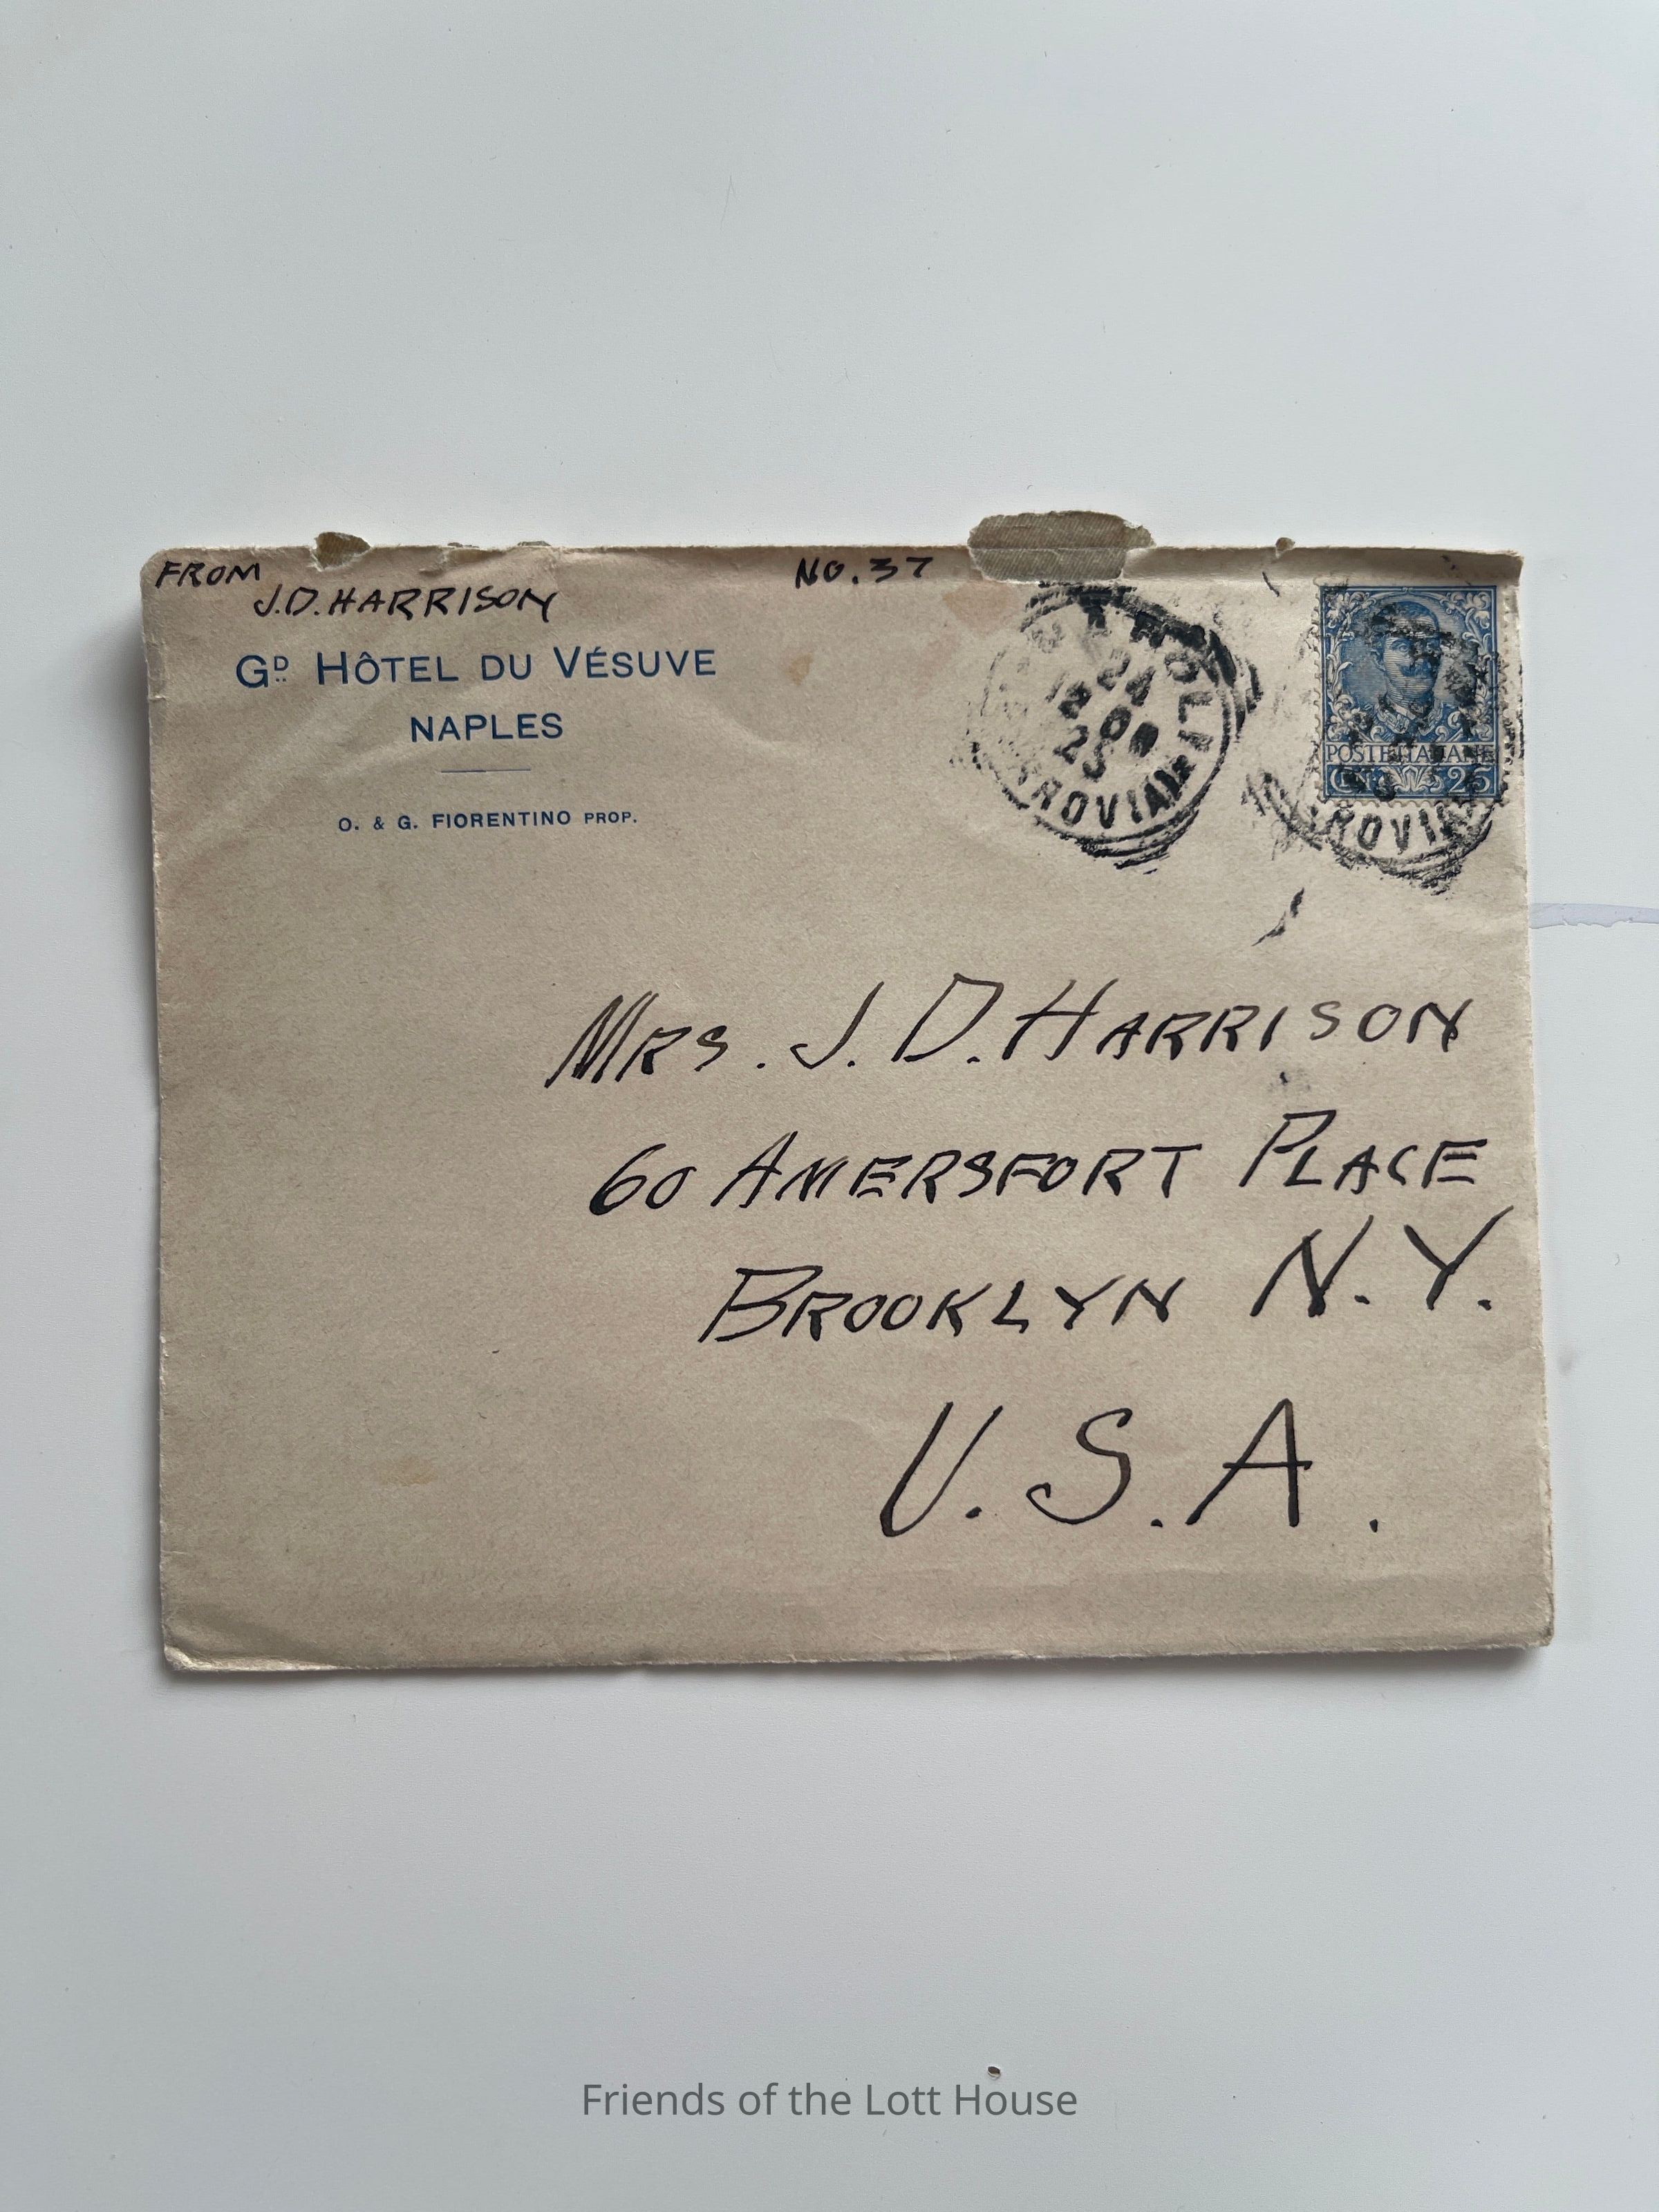 FROM
J.D. HARRISON
NO. 37
GD HÔTEL DU VÉSUVE
NAPLES
O. & G. FIORENTINO PROP.
NAPOLI
24
12
25
POSTE ITALIANE
CENT. 25
MRS. J. D. HARRISON
60 AMERSFORT PLACE
BROOKLYN N.Y.
U.S.A.
Friends of the Lott House